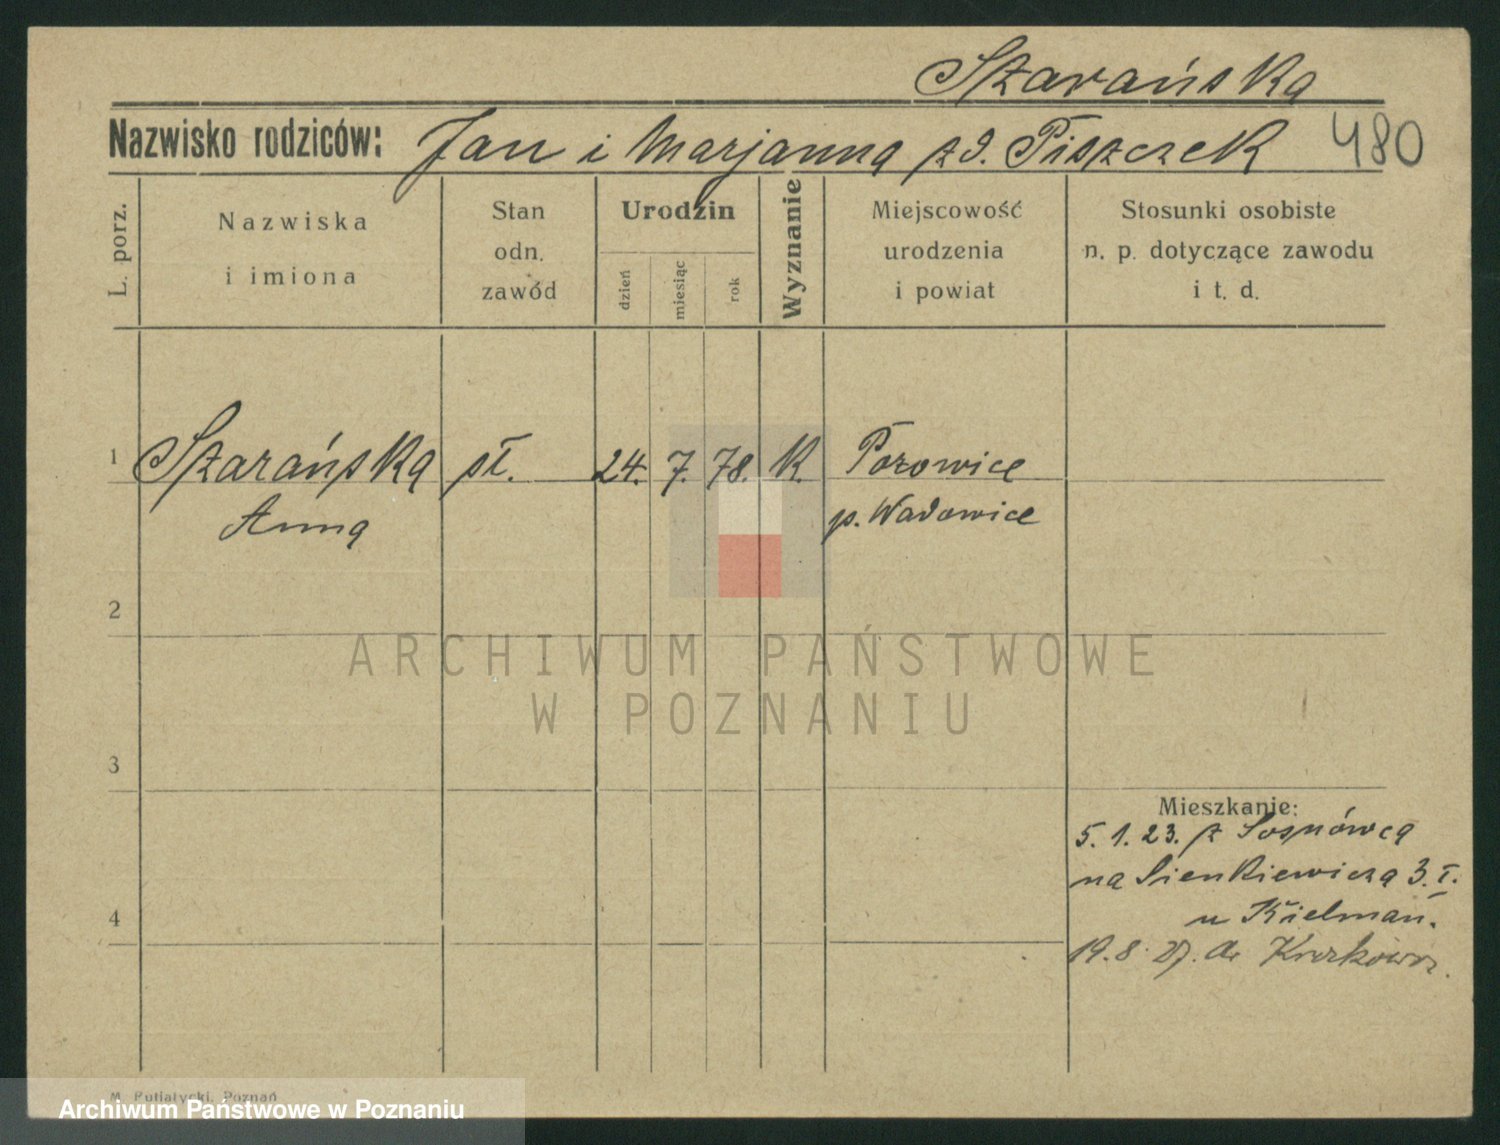 Szarańska
Nazwisko rodziców: Jan i Marjanna zd. Piszczek 480
L. porz.
Nazwiska
i imiona
Stan
odn.
zawód
Urodzin
dzień
miesiąc
rok
Wyznanie
Miejscowość
urodzenia
i powiat
Stosunki osobiste
n. p. dotyczące zawodu
i t. d.
1 Szarańska st. 24. 7. 78. k. Porowice
Anna p. Wadowice
2
ARCHIWUM PAŃSTWOWE
W POZNANIU
3
Mieszkanie:
5. 1. 23. z Sosnówca
na Sienkiewicza 3. I.
4
u Kielmań.
19. 8. 27. do Krakowa
M. Putiatycki, Poznań
Archiwum Państwowe w Poznaniu